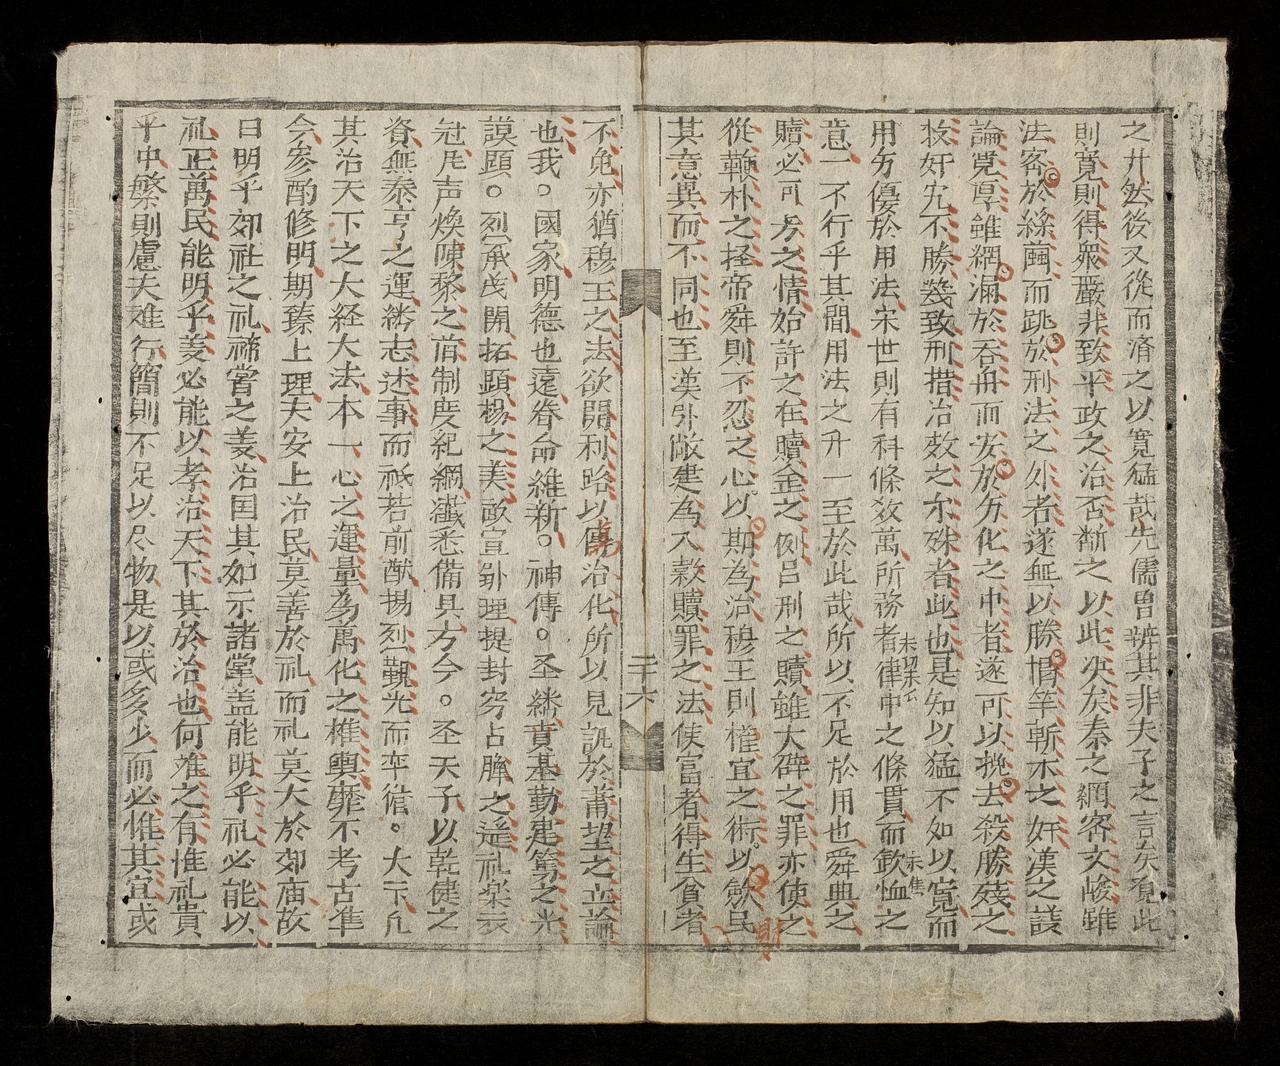 之廾然後又從而濟之以寬猛哉先儒曽辨其非夫子之言矣覔此
則寛則得衆嚴非致平政之治否斷之以此决矣秦之網密文峻雖
法密於絲繭而跳於刑法之外者遂無以勝揭竿斬木之奸漢之議
論寛厚雖網漏於吞舟而安於方化之中者遂可以挑去殺勝殘之
效奸宄不勝幾致刑措治效之尓殊者此也是知以猛不如以寛而
用方優於用法宋世則有科條效萬所務者律中之條貫而欽恤之
意一不行乎其間用法之升一至於此哉所以不足於用也舜典之
贖必可方之情始許之在贖金之例吕刑之贖雖大辟之罪亦使之
從鞭朴之择帝舜則不忍之心以期為治穆王則權宜之術以歛民
其意異而不同也至漢孙敞建為入榖贖罪之法使富者得生貧者
二十六
不免亦猶穆王之法欲開利路以傷治化所以見訛於蕭望之立論
也我。國家明德也遠眷命維新。神傳。圣綉賁基勤建篤之光
謨顕。烈承茂開拓顕楊之美畝宣卧理提封穷占脾之遥礼樂衣
冠凥声煥陳黎之首制度紀綱纖悉備具方今。圣天子以乾健之
資無泰亨之運綉志述事而祇若前猷揚烈觀光而率循。大卞凢
其治天下之大経大法本一心之運量為萬化之權輿靡不考古準
今参酌修明期臻上理夫安上治民莫善於礼而礼莫大於郊庙故
曰明乎郊社之礼禘嘗之義治囯其如示諸掌盖能明乎礼必能以
礼正萬民能明乎義必能以孝治天下其於治也何难之有惟礼貴
乎中繁則慮夫难行簡則不足以尽物是以或多少而必惟其宜或